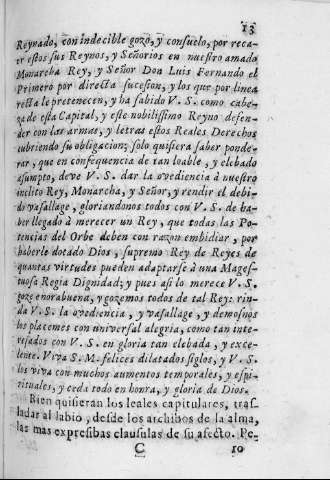 13
Reynado, con indecible gozo, y consuelo, por reca-
er estos sus Reynos, y Señorios en nuestro amado
Monarcha Rey, y Señor Don Luis Fernando el
Primero por directa sucession, y los que por linea
recta le pretenecen, y ha sabido V. S. como cabe-
za de esta Capital, y este nobilissimo Reyno defen-
der con las armas, y letras estos Reales Derechos
cubriendo su obligacion; solo quisiera saber ponde-
rar, que en consequencia de tan loable, y elebado
asumpto, deve V. S. dar la ovediencia à nuestro
inclito Rey, Monarcha, y Señor, y rendir el debi-
do vasallage, gloriandonos todos con V. S. de ha-
ber llegado à merecer un Rey, que todas las Po-
tencias del Orbe deben con razon embidiar, por
haberle dotado Dios, supremo Rey de Reyes de
quantas virtudes pueden adaptarse à una Mages-
tuosa Regia Dignidad; y pues asi lo merece V. S.
goze enorabuena, y gozemos todos de tal Rey: rin-
da V. S. la ovediencia, y vasallage, y demosnos
los placemes con universal alegria, como tan inte-
resados con V. S. en gloria tan elebada, y exce-
lente. Viva S. M. felices dilatados siglos, y V. S.
los viva con muchos aumentos temporales, y espi-
rituales, y ceda todo en honra, y gloria de Dios.
Bien quisieran los leales capitulares, tras-
ladar al labio, desde los archibos de la alma,
las mas expresibas clausulas de su afecto. Pe-
C
ro